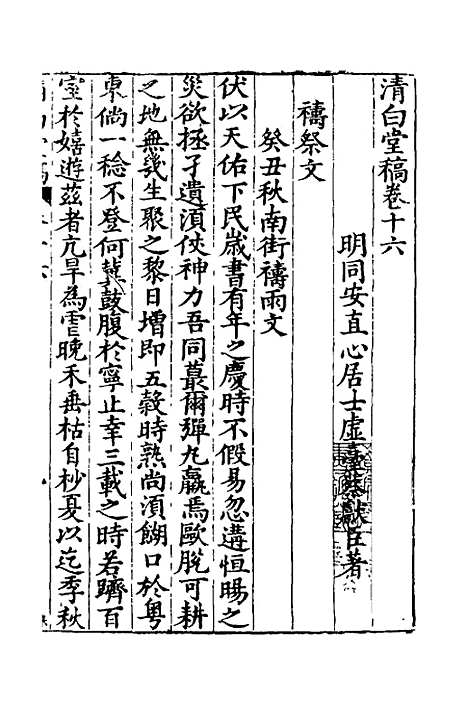 清白堂稿卷十六
明同安直心居士虛臺蔡獻臣著
禱祭文
癸丑秋南街禱雨文
伏以天佑下民歲書有年之慶時不假易忽遘恒暘之
災欲拯孑遺湏仗神力吾同蕞爾彈丸羸焉歐脫可耕
之地無幾生聚之黎日增即五穀時熟尚湏餬口於粵
東倘一稔不登何冀鼓腹於寧止幸三載之時若躋百
室於嬉遊茲者亢旱為虐晚禾垂枯自杪夏以迄季秋